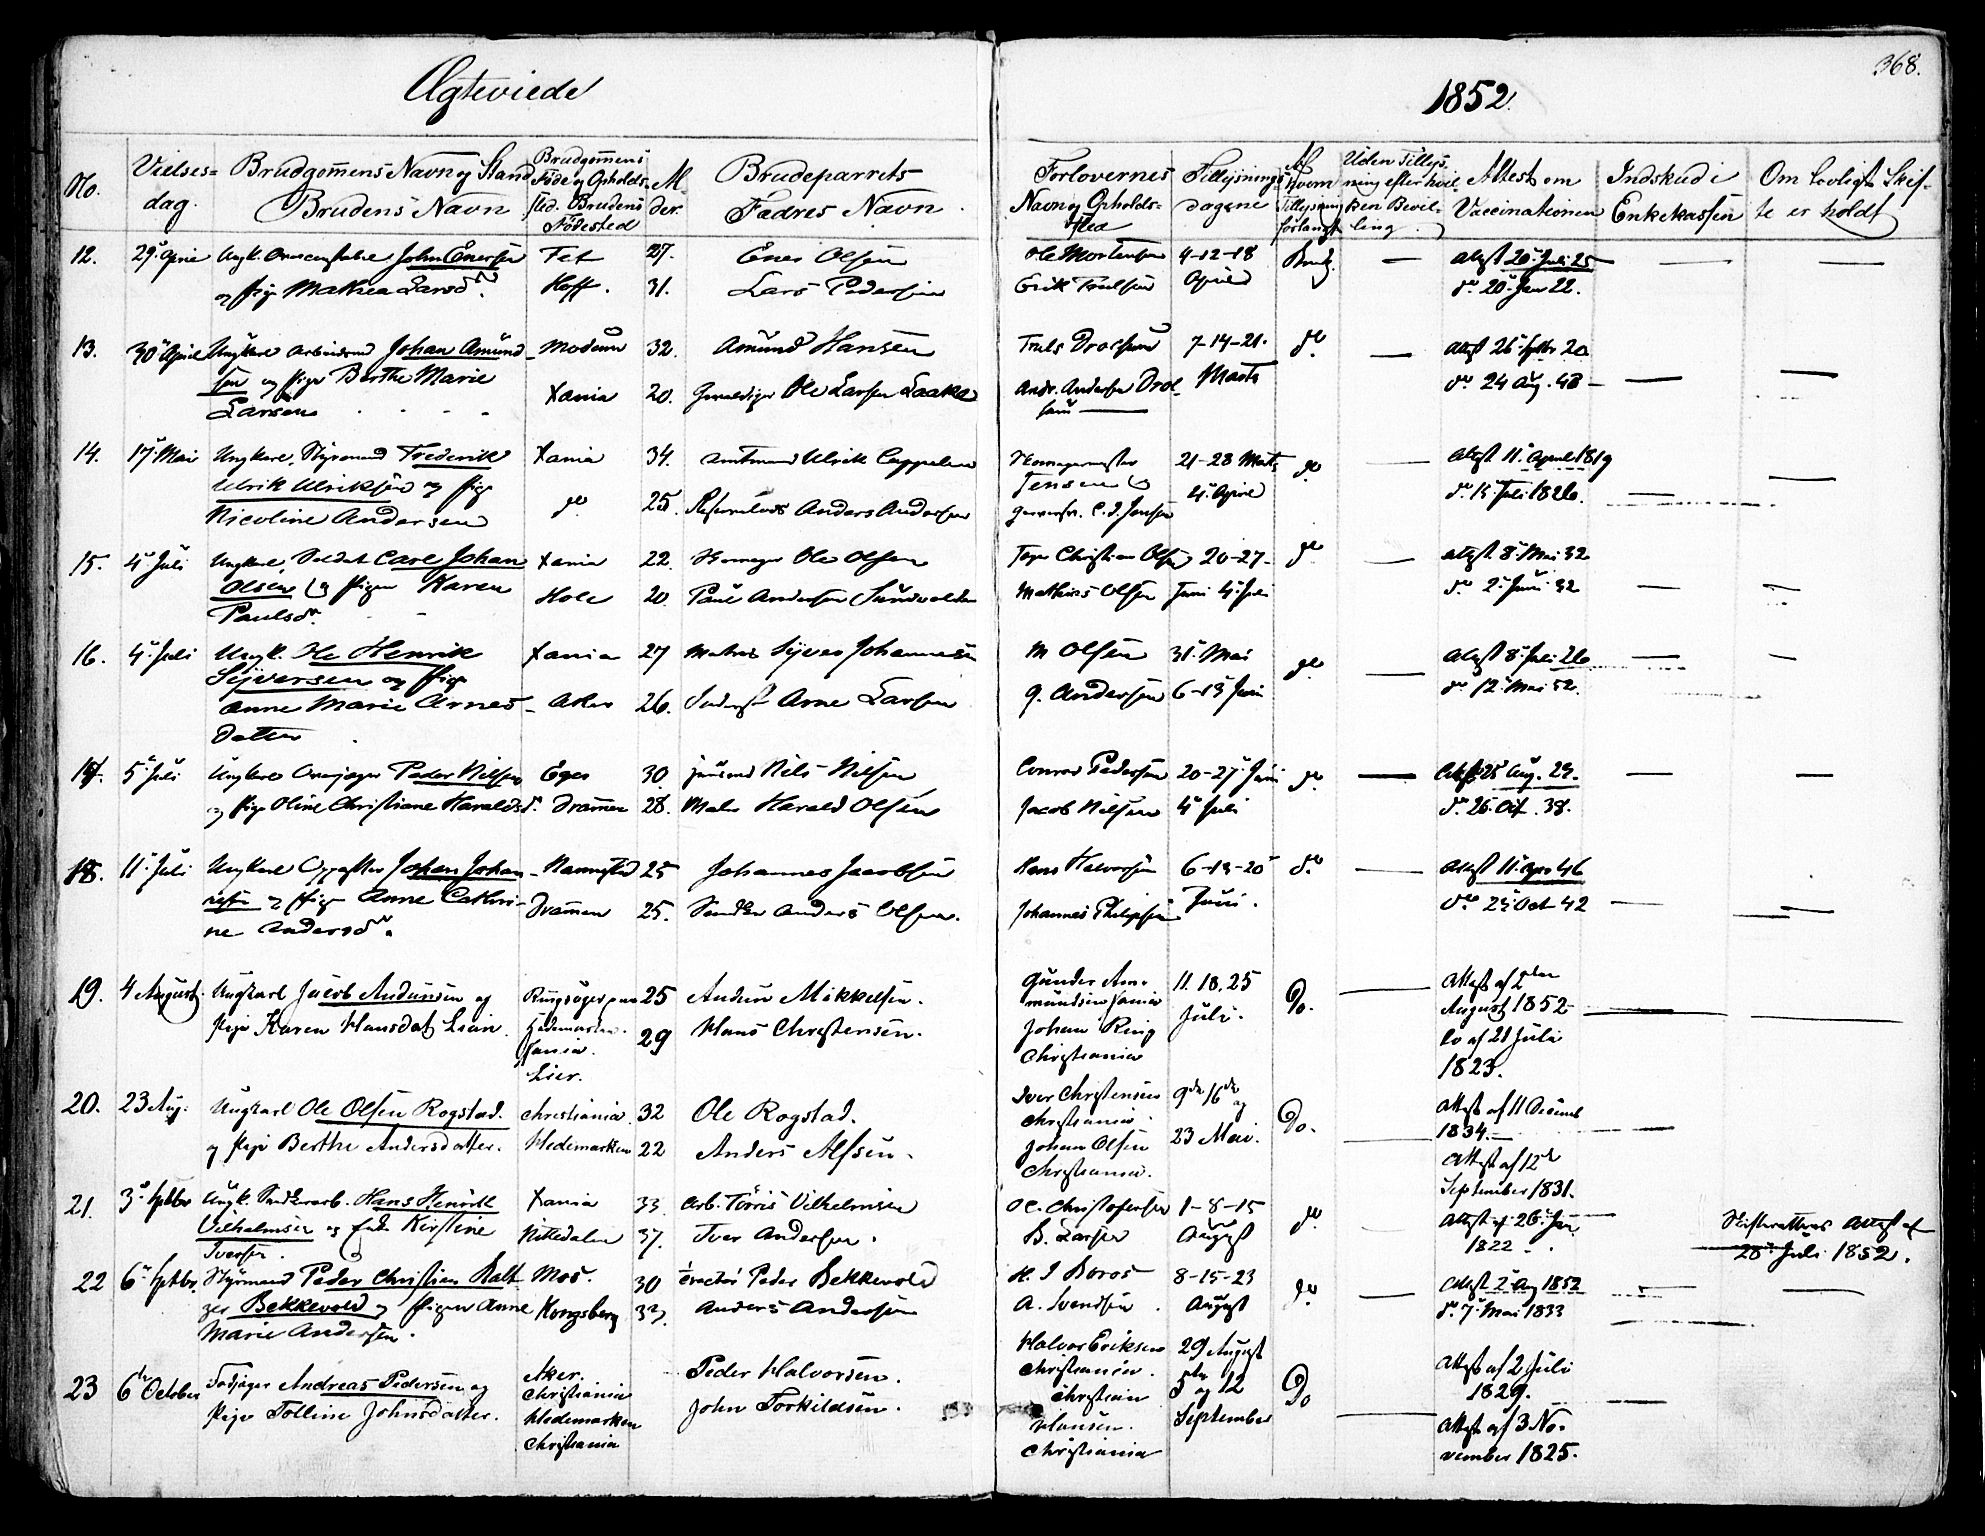 Ægteviede
1852.
368.
No.
Vielses=
dag.
Brudgommens Navn og Stand
Brudens Navn
Brudgommens
Føde og Opholds-
sted. Brudens
Fødested
Al-
der.
Brudeparrets
Fædres Navn
Forlovernes
Navn og Opholds-
sted
Tillysnings
dagene
Af
hvem
Tillysning
forlangt
Uden Tillys-
ning efter hvil-
ken Bevil-
ling.
Attest om
Vaccinationen
Indskud i
Enkekassen
Om lovligt Skif-
te er holdt
12. 29 April Ungk. John Enersen Fet 27. Ener Olsen Ole Mortensen 4-12-18 Brudg. — Attest 20 Juli 25 — —
og Pige Mathea Larsd. Hoff. 31. Lars Pedersen Erik Trulsen April do 20 Jan 22.
13. 30 April Ungkarl Arbeidsmd Johan Amund- Modum 32. Amund Hansen Truls 7-14-21. do — Attest 26 Septbr 20
sen og Pige Berthe Marie
Xania 20. Ole Larsen Laake Andr. Andersen Marts do 24 Aug. 48 — — —
Larsen
14. 17 Mai Ungkarl, Styrmand Frederik Xania 34. Amtmand Ulrik Cappelen 21-28 Marts do — Attest 11 April 1819
Ulrik Ulriksen og Pige Jensen 4 April
do 25. Anders Andersen C. J. Jensen do 15 Juli 1826. — —
Nicoline Andersen
15. 4 Juli Ungkarl, Soldat Carl Johan Xania 22. Ole Olsen Christian Olsen 20-27- do — Attest 8 Mai 32
Olsen og Pigen Karen Hole 20. Paul Andersen Sundvolden Mathias Olsen Juni 4 Juli do 2 Juni 32 — —
Paulsd.
16. 4 Juli Ungk. Ole Henrik Xania 27 Matros Syver Johannesen M Olsen 31 Mai do — Attest 8 Juli 26 — —
Syversen og Pige
Anne Marie Arnes- Aker 26. Arne Larsen G. Andersen 6-13 Juni do 12 Mai 52.
datter
17. 5 Juli Ungkarl Peder Nilsen Eger 30. Nils Nilsen Conrad Pedersen 20-27 Juni do — Attest 25 Aug. 29. — —
og Pige Oline Christiane Haraldsd. Drammen 28. Harald Olsen Jacob Nilsen 4 Juli do 26 Oct. 38.
18. 11 Juli Ungkarl Oppasser Johan Johan- Nannestad 25 Johannes Jacobsen Hans Halvorsen 6-13-20 do — Attest 11 Apr 46
nesen og Pige Anne Cathri- Drammen 25. Anders Olsen. Johannes Philipsen Juni. do 24 Oct 42 — —
ne Andersd.
19. 4 August. Ungkarl Jacob Andunsen og Ringsager paa 25 Andun Mikkelsen. Gunder Am- 11. 18. 25 Do. — Attest af 2den
Pige Karen Hansdat Lian. Hedemarken. 29 Hans Christensen. mundsen Xania Juli. August 1852 — —
Xania. Johan Ring Do af 21 Juli
Lier. Christiania 1823.
20. 23 Aug. Ungkarl Ole Olsen Rogstad. Christiania 32 Ole Rogstad. Iver Christensen 9de 16de og Do. Attest af 11 Decemb
og Pige Berthe Andersdatter. Hedemarken 22 Anders Alfsen. Christiania. 23 Mai. 1834. —
Johan Olsen Attest af 12de
Christiania. September 1831.
21. 3 Septbr Ungk. Hans Henrik Xania 33. Arb. Törris Vilhelmsen Ol. Christofersen 1-8-15 do — Attest af 26 Jan Skifterettens Attest af
Vilhelmsen og Enke Kirstine Nittedalen 37. Iver Andersen. B. Larsen August 1822 28 Juli 1852.
Iversen.
22 6 Septbr. Styrmand Peder Christian Balt- Mos. 30 Peder Bekkevold H. J Boros 8-15-23 do — Attest 2 Aug 1852 — —
zer Bekkevold og Pigen Anne Kongsberg 33. Anders Andersen A. Svendsen. August do 7 Mai 1833
Marie Andersen.
23 6te October Andreas Pedersen og Aker. Peder Halvorsen. Halvor Eriksen 29 August Do Attest af 2 Juli
Pige Tolline Johnsdatter. Christiania John Torkildsen. Christiania. 5te og 12 1829.
Hedemarken Christian September Attest af 3 No-
Christiania Hansen. vember 1825.
Christiania